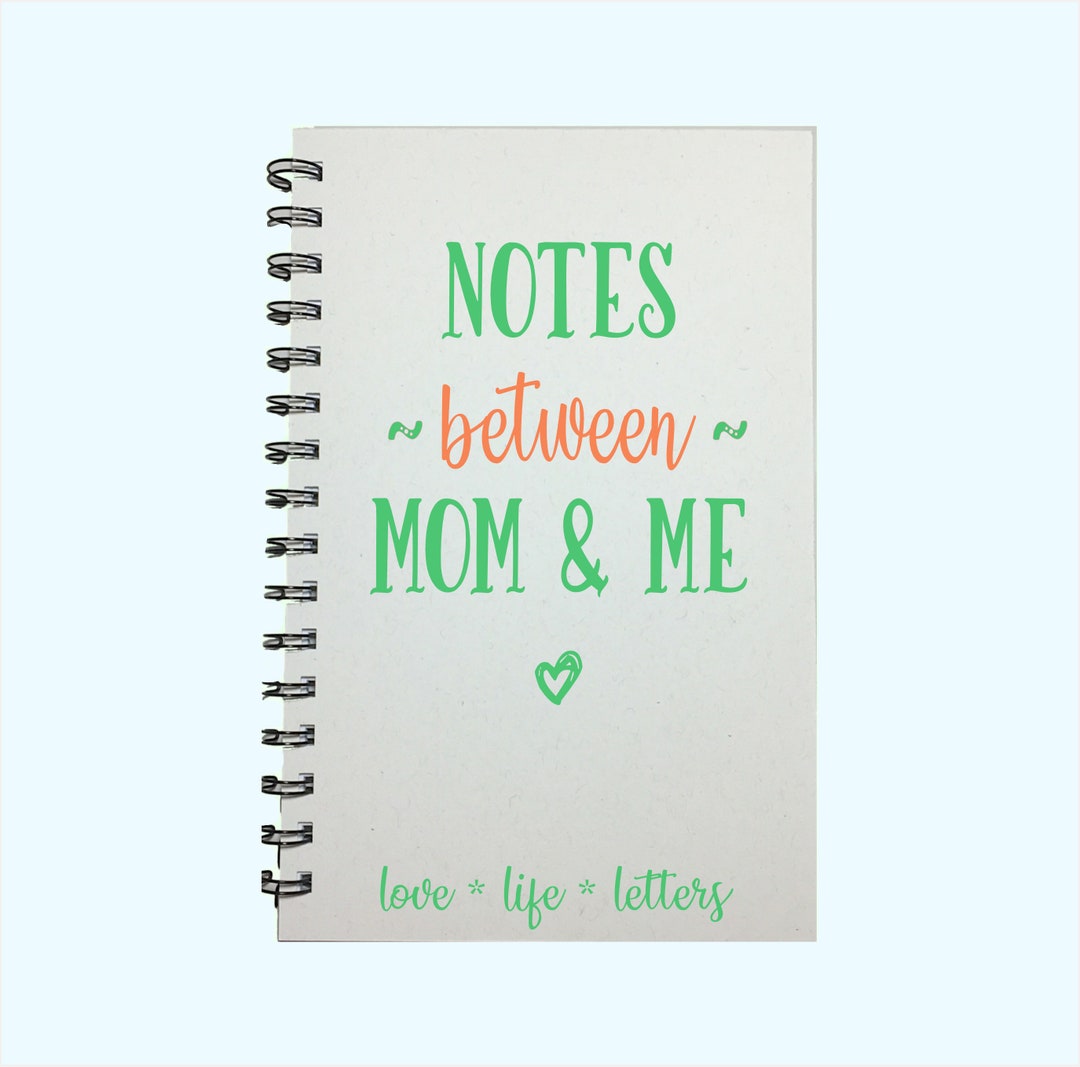 NOTES
~ between ~
MOM & ME
love * life * letters